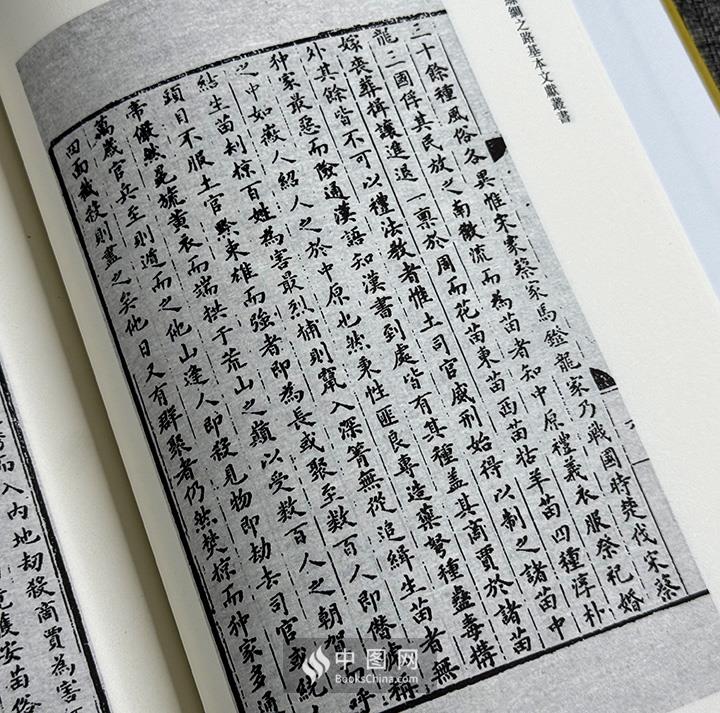 綢之路基本文獻叢書
三十餘種風俗各異惟宋家蔡家馬鐙龍家乃戰國時楚伐宋蔡
龍二國俘其民放之南徼流而為苗者知中原禮義衣服祭祀婚
嫁喪葬揖讓進退一稟於周而花苗東苗西苗牯羊苗四種淳朴
外其餘皆不可以禮法教者惟土司官威刑始得以制之諸苗中
狆家最惡而險通漢語知漢書到處皆有其種蓋其商賈於諸苗
之中如薇人紹人之於中原也然秉性匪良專造藥弩種蠱毒搆
結生苗刦掠百姓為害最烈捕則竄入深箐無從追緝生苗者無
頭目不服土官黔東雄而強者即為長或聚至數百人即僭稱
帝儼然冕旒黃衣而端拱于荒山之巔以受數百人之朝賀呼
萬歲官兵至則遁而之他山逢人即殺見物即劫去司官或統
四面截殺則盡之矣他日又有群聚者仍然焚掠而狆家多通
而入內地劫殺商賈為害
安苗俗
中图网
BooksChina.com